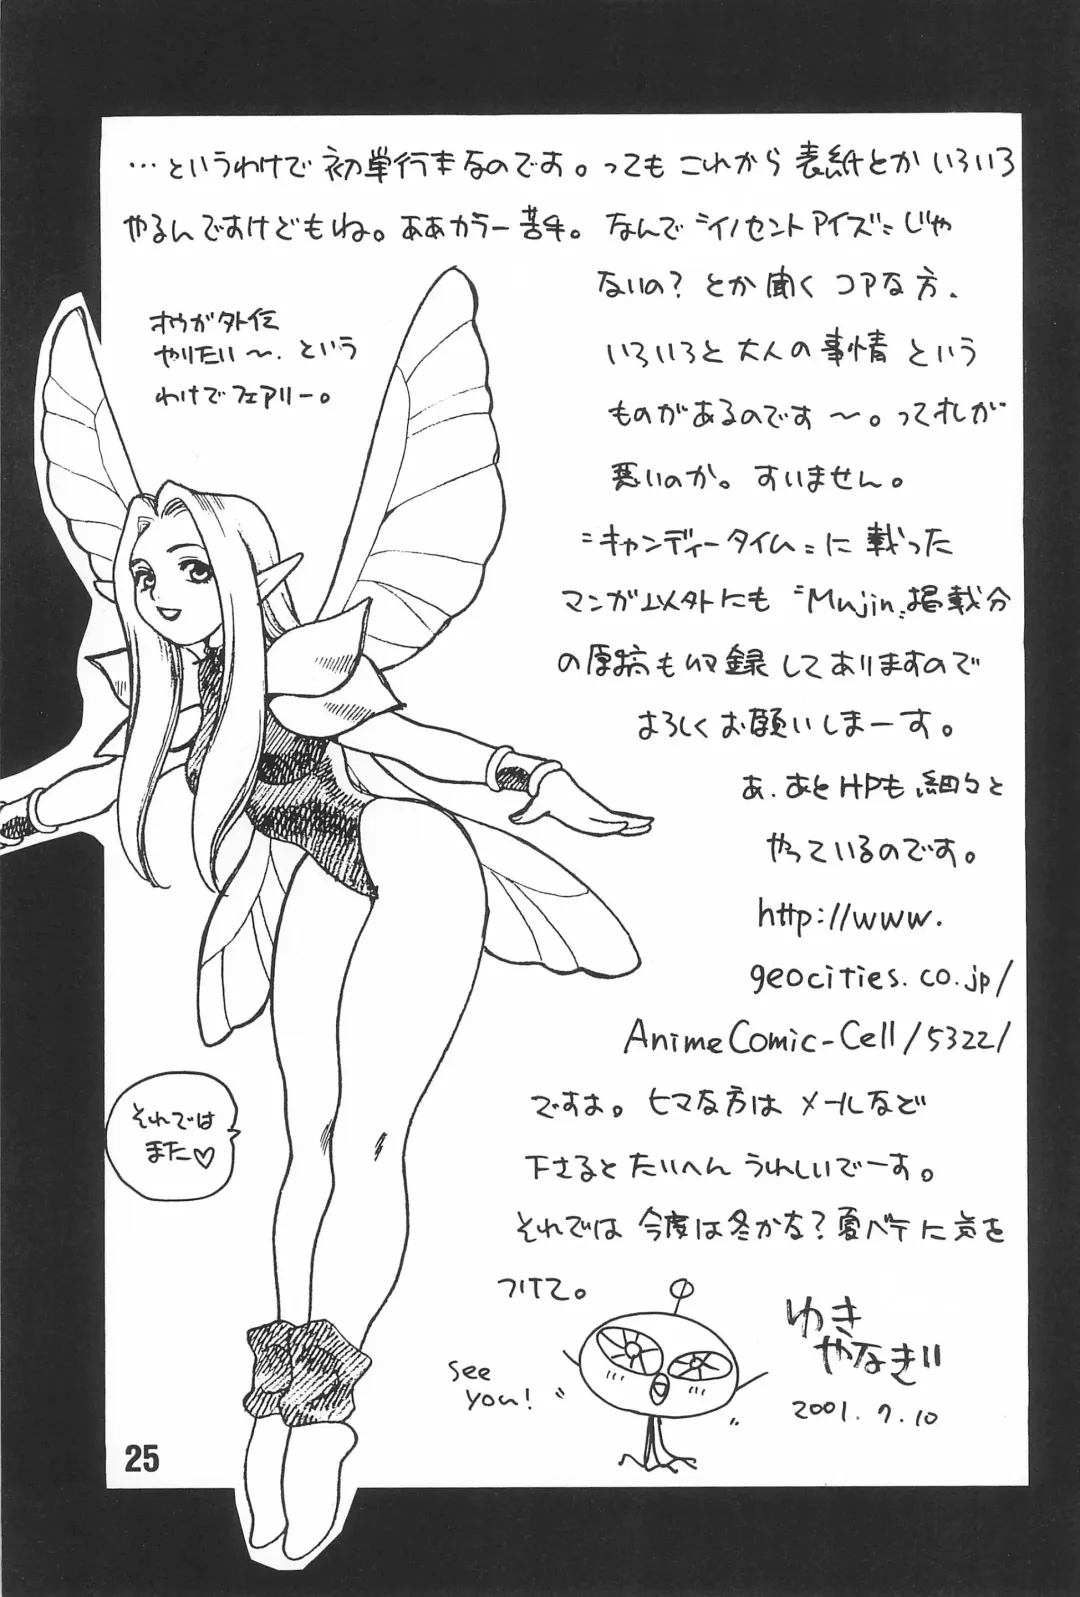 …というわけで初単行本なのです。っても これから 表紙とか いろいろ
やるんですけどもね。ああカラー苦手。なんで"イノセントアイズ"じゃ
ないの?とか聞く コアな方、
いろいろと大人の事情 という
ものがあるのです〜。ってオレが
悪いのか。すいません。
"キャンディータイム"に載った
マンガ以外にも"Mujin"掲載分
の原稿も収録してありますので
よろしくお願いしまーす。
あ、あとHPも細々と
やっているのです。
http://www.
geocities.co.jp/
AnimeComic-Cell/5322/
ですよ。ヒマな方は メールなど
下さると たいへん うれしいでーす。
それでは 今度は冬かな?夏バテに気を
つけて。
ホウガ外伝
やりたい〜、という
わけでフェアリー。
それでは
また♡
see
you!
ゆき
やなぎ
2001.7.10
25